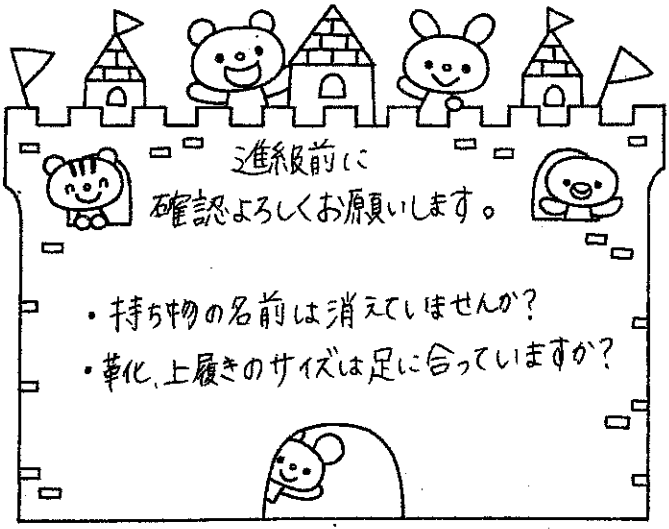 進級前に
確認よろしくお願いします。
・持ち物の名前は消えていませんか?
・革化、上履きのサイズは足に合っていますか?